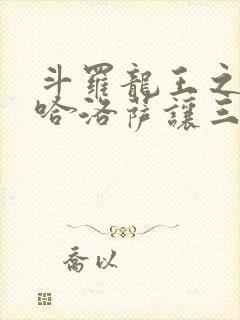 斗羅龍王之
哈洛薩讓三
喬以